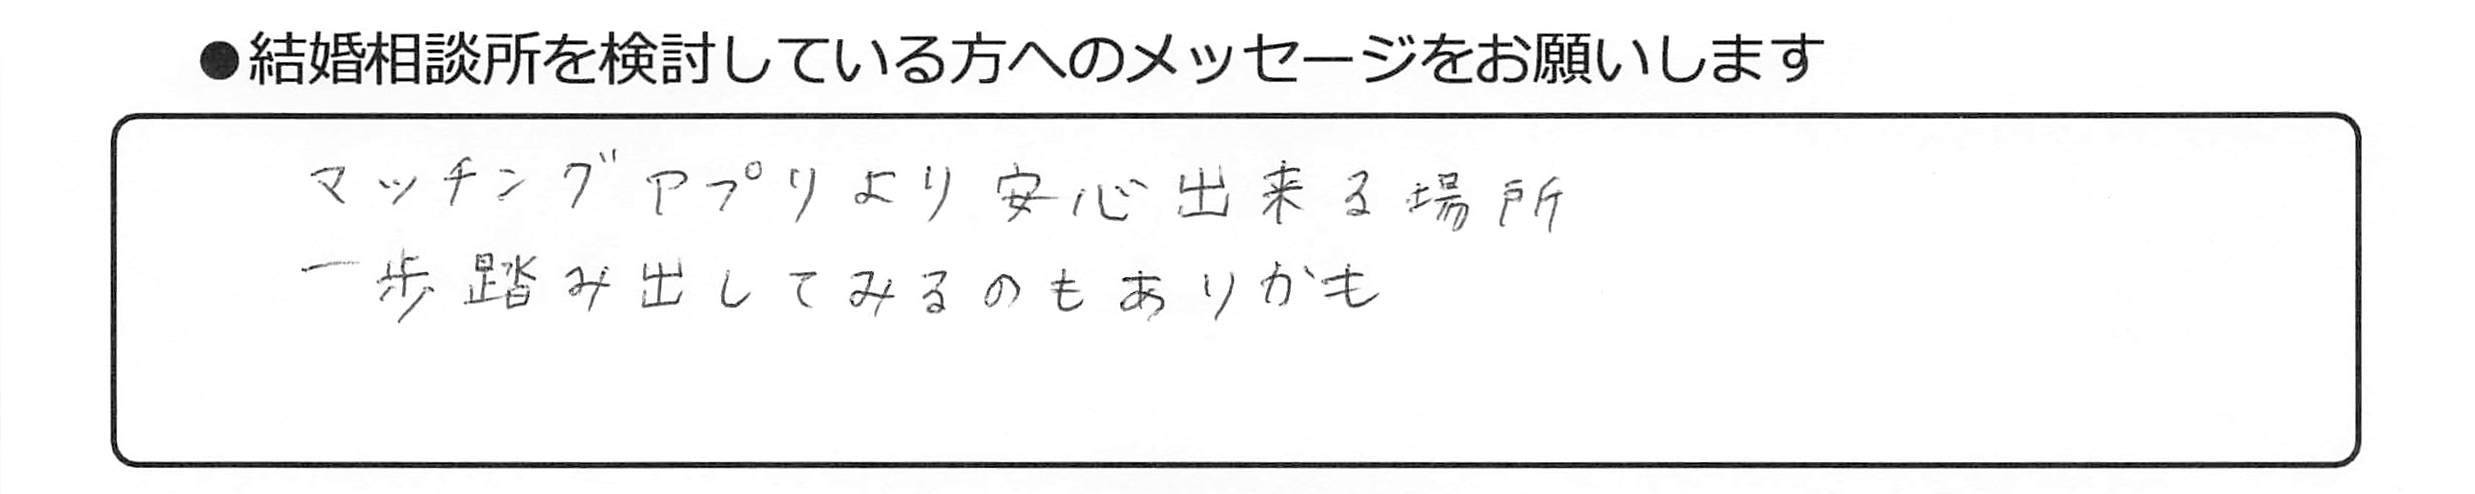 ●結婚相談所を検討している方へのメッセージをお願いします
マッチングアプリより安心出来る場所
一歩踏み出してみるのもありかも